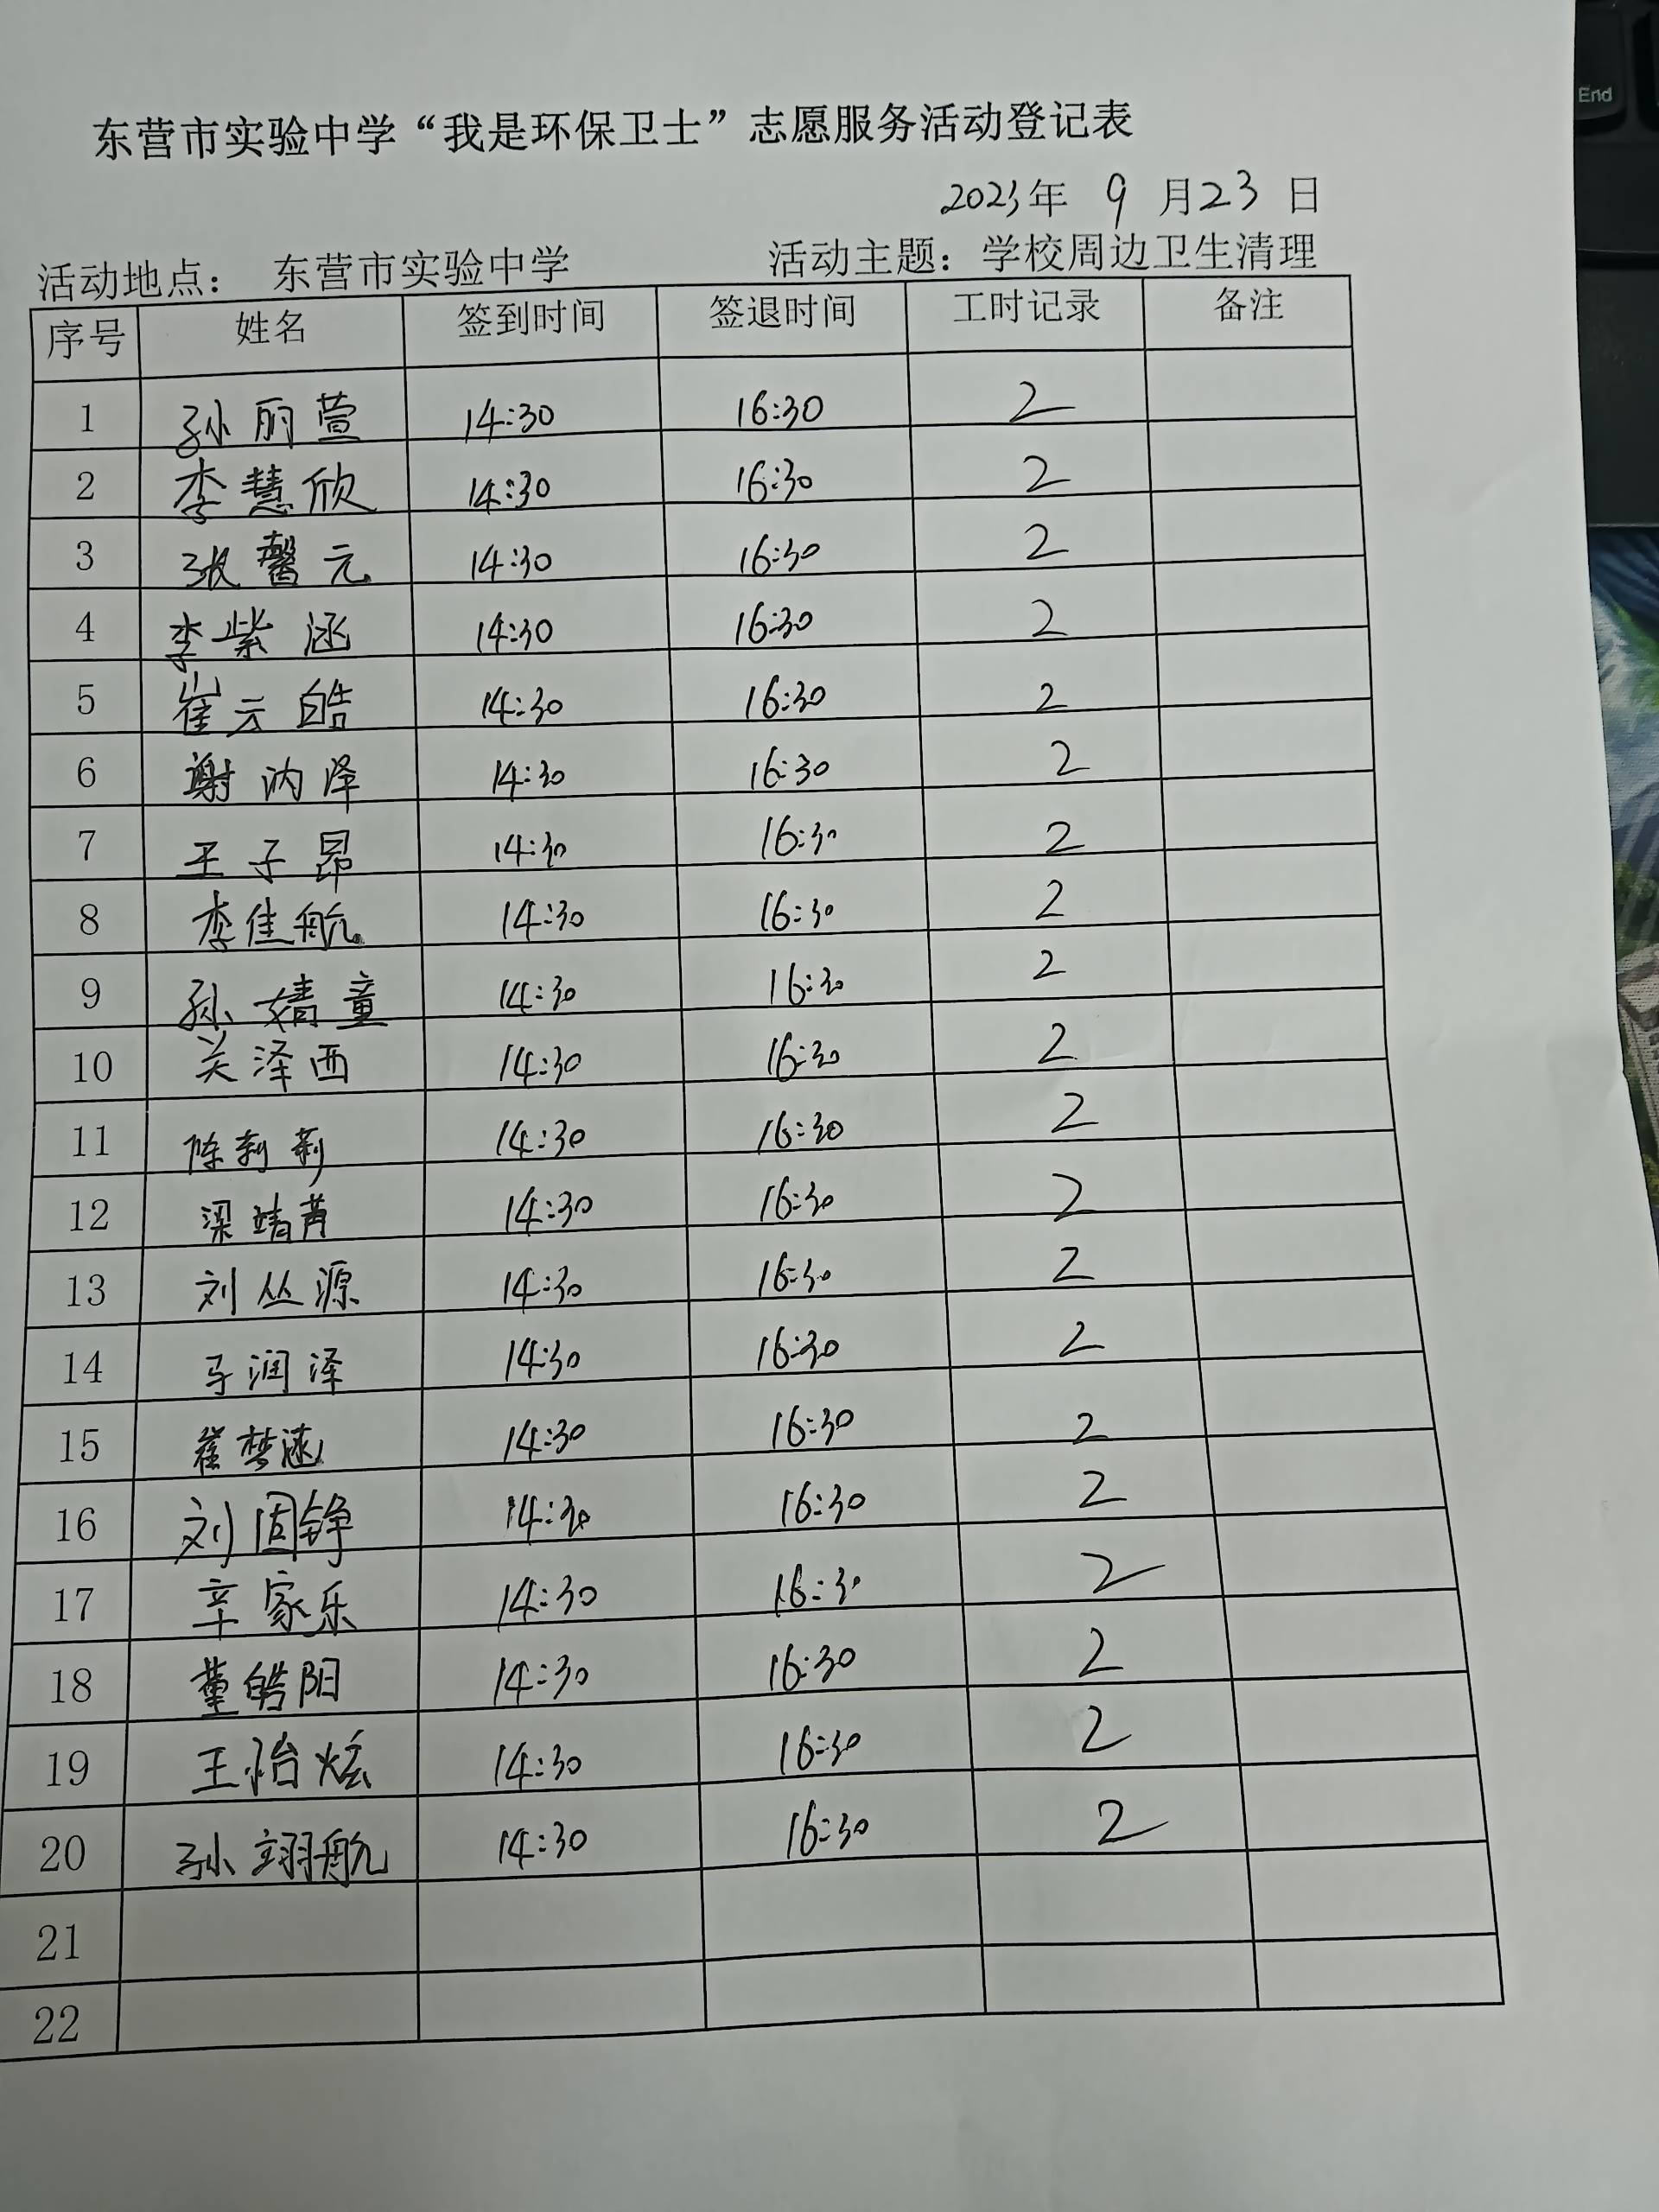 End
东营市实验中学“我是环保卫士”志愿服务活动登记表
2023年 9 月23 日
活动地点： 东营市实验中学 活动主题：学校周边卫生清理
序号 姓名 签到时间 签退时间 工时记录 备注
1 孙丽萱 14:30 16:30 2
2 李慧欣 14:30 16:30 2
3 张馨元 14:30 16:30 2
4 李紫涵 14:30 16:30 2
5 崔云皓 14:30 16:30 2
6 谢汭泽 14:30 16:30 2
7 王子昂 14:30 16:30 2
8 李佳航 14:30 16:30 2
9 孙婧童 14:30 16:30 2
10 关泽西 14:30 16:30 2
11 陈莉莉 14:30 16:30 2
12 梁靖苒 14:30 16:30 2
13 刘丛源 14:30 16:30 2
14 马润泽 14:30 16:30 2
15 崔梦涵 14:30 16:30 2
16 刘固铮 14:30 16:30 2
17 辛家乐 14:30 16:30 2
18 董皓阳 14:30 16:30 2
19 王怡炫 14:30 16:30 2
20 孙翊航 14:30 16:30 2
21
22